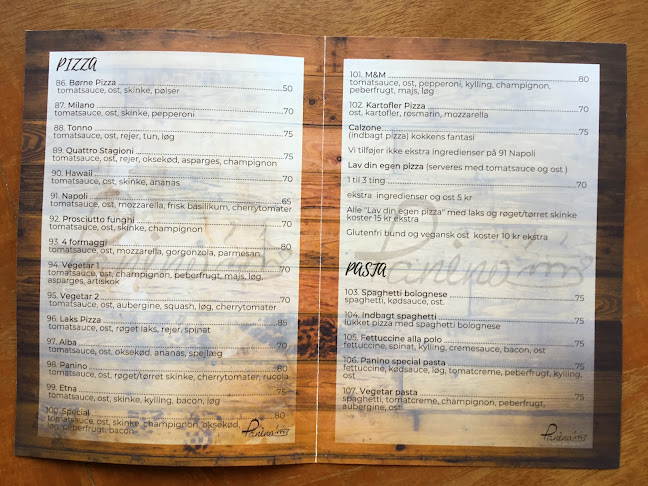 PIZZA
86. Børne Pizza 50
tomatsauce, ost, skinke, pølser
87. Milano 70
tomatsauce, ost, skinke, pepperoni
88. Tonno 75
tomatsauce, ost, rejer, tun, løg
89. Quattro Stagioni 75
tomatsauce, ost, rejer, oksekød, asparges, champignon
90. Hawaii 70
tomatsauce, ost, skinke, ananas
91. Napoli 65
tomatsauce, ost, mozzarella, frisk basilikum, cherrytomater
92. Prosciutto funghi 70
tomatsauce, ost, skinke, champignon
93. 4 formaggi 80
tomatsauce, ost, mozzarella, gorgonzola, parmesan
94. Vegetar 1 70
tomatsauce, ost, champignon, peberfrugt, majs, løg,
asparges, artiskok
95. Vegetar 2 70
tomatsauce, ost, aubergine, squash, løg, cherrytomater
96. Laks Pizza 85
tomatsauce, ost, røget laks, rejer, spinat
97. Alba 70
tomatsauce, ost, oksekød, ananas, spejlæg
98. Panino 80
tomatsauce, ost, røget/tørret skinke, cherrytomater, rucola
99. Etna 75
tomatsauce, ost, skinke, kylling, bacon, løg
100. Special 80
tomatsauce, ost, skinke, champignon, oksekød,
løg, peberfrugt, bacon
Panino's
101. M&M 80
tomatsauce, ost, pepperoni, kylling, champignon,
peberfrugt, majs, løg
102. Kartofler Pizza 70
ost, kartofler, rosmarin, mozzarella
Calzone 75
(indbagt pizza) kokkens fantasi
Vi tilføjer ikke ekstra ingredienser på 91 Napoli
Lav din egen pizza (serveres med tomatsauce og ost )
1 til 3 ting 70
ekstra ingredienser og ost 5 kr
Alle "Lav din egen pizza" med laks og røget/tørret skinke
koster 15 kr ekstra
Glutenfri bund og vegansk ost koster 10 kr ekstra
PASTA
103. Spaghetti bolognese 75
spaghetti, kødsauce, ost
104. Indbagt spaghetti 75
lukket pizza med spaghetti bolognese
105. Fettuccine alla polo 75
fettuccine, spinat, kylling, cremesauce, bacon, ost
106. Panino special pasta 75
fettuccine, kødsauce, løg, tomatcreme, peberfrugt, kylling,
ost
107. Vegetar pasta 75
spaghetti, tomatcreme, champignon, peberfrugt,
aubergine, ost
Panino's